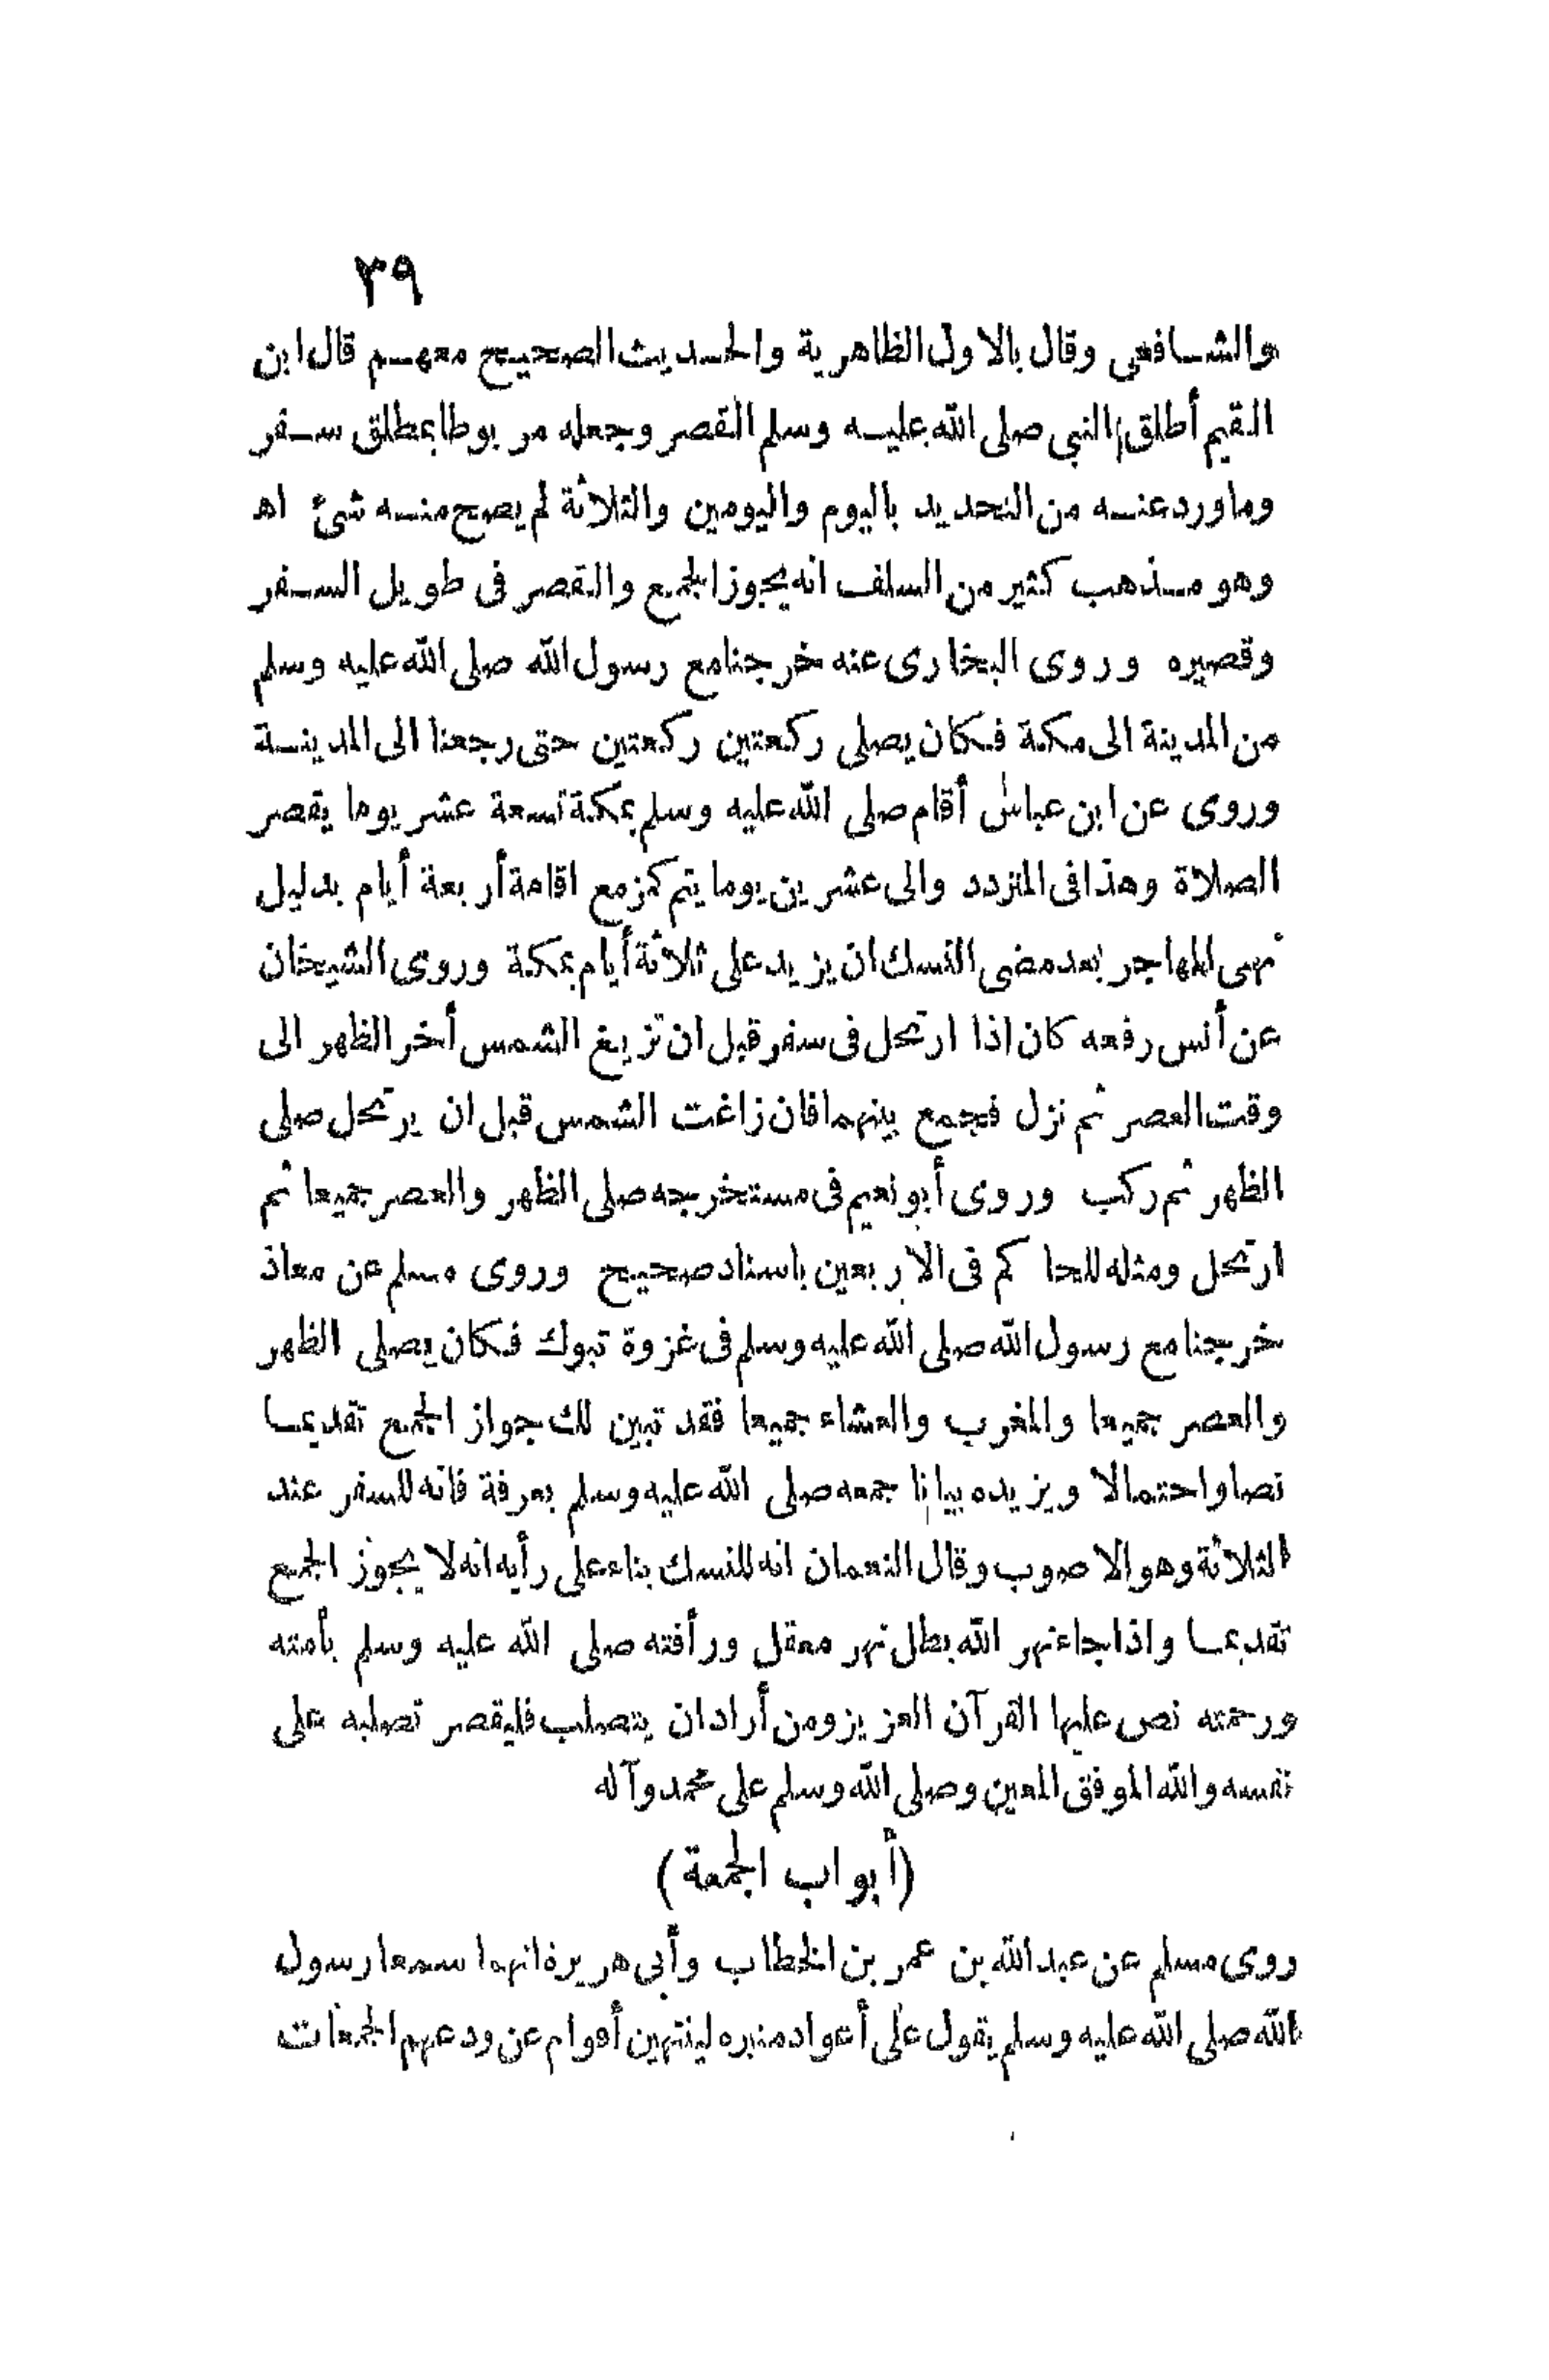 ٣٩
والشافعي وقال بالاول الظاهرية والحديث الصحيح معهم قال ابن
القيم أطلق النبي صلى الله عليه وسلم القصر وجعله مربوطا بمطلق سفر
وما ورد عنه من التحديد باليوم واليومين والثلاثة لم يصح منه شئ اه
وهو مذهب كثير من السلف انه يجوز الجمع والقصر فى طويل السفر
وقصيره وروى البخارى عنه خرجنا مع رسول الله صلى الله عليه وسلم
من المدينة الى مكة فكان يصلى ركعتين ركعتين حتى رجعنا الى المدينة
وروى عن ابن عباس أقام صلى الله عليه وسلم بمكة تسعة عشر يوما يقصر
الصلاة وهذا فى المتردد والى عشرين يوما يتم كمزمع اقامة أربعة أيام بدليل
نهى المهاجر بعد مضى النسك ان يزيد على ثلاثة أيام بمكة وروى الشيخان
عن أنس رفعه كان اذا ارتحل فى سفر قبل ان تزيغ الشمس أخر الظهر الى
وقت العصر ثم نزل فجمع بينهما فان زاغت الشمس قبل ان يرتحل صلى
الظهر ثم ركب وروى أبو نعيم فى مستخرجه صلى الظهر والعصر جميعا ثم
ارتحل ومثله للحاكم فى الاربعين باسناد صحيح وروى مسلم عن معاذ
خرجنا مع رسول الله صلى الله عليه وسلم فى غزوة تبوك فكان يصلى الظهر
والعصر جميعا والمغرب والعشاء جميعا فقد تبين لك جواز الجمع تقديما
نصا واحتمالا ويزيده بيانا جمعه صلى الله عليه وسلم بعرفة فانه للسفر عند
الثلاثة وهو الاصوب وقال النعمان انه للنسك بناء على رأيه انه لا يجوز الجمع
تقديما واذا جاء نهر الله بطل نهر معقل ورأفته صلى الله عليه وسلم بأمته
ورحمته نص عليها القرآن العزيز ومن أراد ان يتصلب فليقصر تصلبه على
نفسه والله الموفق المعين وصلى الله وسلم على محمد وآله
(أبواب الجمعة)
روى مسلم عن عبد الله بن عمر بن الخطاب وأبى هريرة انهما سمعا رسول
الله صلى الله عليه وسلم يقول على أعواد منبره لينتهين أقوام عن ودعهم الجمعات